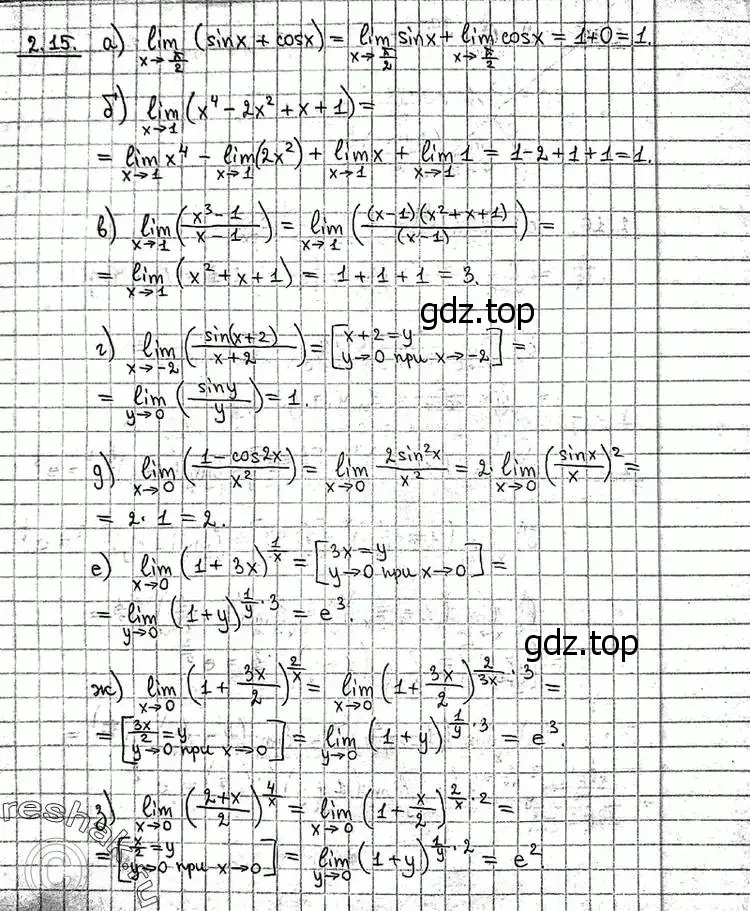 2.15. а) lim x→π/2 (sinx + cosx) = lim x→π/2 sinx + lim x→π/2 cosx = 1+0 = 1.
б) lim x→1 (x⁴ - 2x² + x + 1) =
= lim x→1 x⁴ - lim x→1 (2x²) + lim x→1 x + lim x→1 1 = 1-2+1+1=1.
в) lim x→1 ((x³-1)/(x-1)) = lim x→1 ((x-1)(x²+x+1)/(x-1)) =
= lim x→1 (x²+x+1) = 1+1+1 = 3.
gdz.top
г) lim x→-2 (sin(x+2)/(x+2)) = [x+2=y
y→0 при x→-2] =
= lim y→0 (siny/y) = 1.
д) lim x→0 ((1-cos2x)/x²) = lim x→0 2sin²x/x² = 2·lim x→0 (sinx/x)² =
= 2·1 = 2.
е) lim x→0 (1+3x)^(1/x) = [3x=y
y→0 при x→0] =
= lim y→0 (1+y)^(1/y·3) = e³.
gdz.top
ж) lim x→0 (1+3x/2)^(2/x) = lim x→0 (1+3x/2)^(2/3x·3) =
= [3x/2=y
y→0 при x→0] = lim y→0 (1+y)^(1/y·3) = e³.
з) lim x→0 ((2+x)/2)^(4/x) = lim x→0 (1+x/2)^(2/x·2) =
= [x/2=y
y→0 при x→0] = lim y→0 (1+y)^(1/y·2) = e².